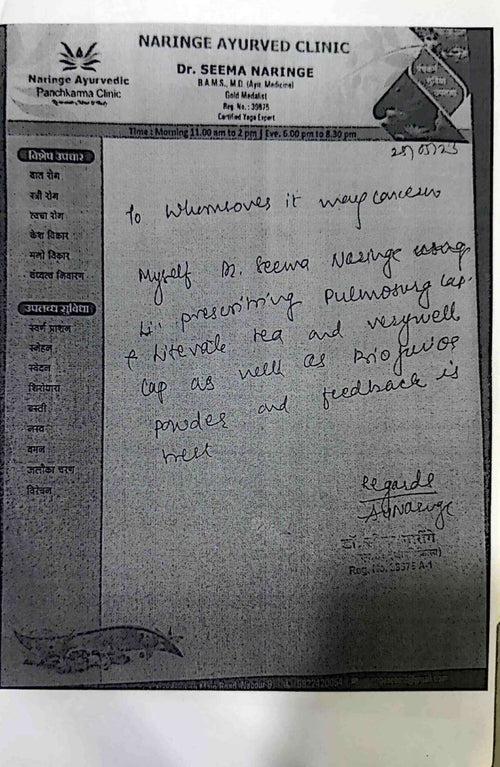 NARINGE AYURVED CLINIC
Naringe Ayurvedic
Panchkarma Clinic
Dr. SEEMA NARINGE
B.A.M.S., M.D. (Ayu. Medicine)
Gold Medalist
Reg. No. : 39875
Certified Yoga Expert
Time : Morning 11.00 am to 2 pm | Eve. 6.00 pm to 8.30 pm
विशेष उपचार
वात रोग
स्त्री रोग
त्वचा रोग
केश विकार
मनो विकार
वंध्यत्व निवारण
उपलब्ध सुविधा
स्वर्ण प्राशन
स्नेहन
स्वेदन
शिरोधारा
बस्ती
नस्य
वमन
जलौका चरण
विरेचन
To Whomsoever it may concern
Myself Dr. Seema Naringe
prescribing Pulmosurg Cap.
& Liverate tea and verywell
Cap as well as Biojuios
powder and feedback is
best
Regards
डॉ.
Reg. No. A-1